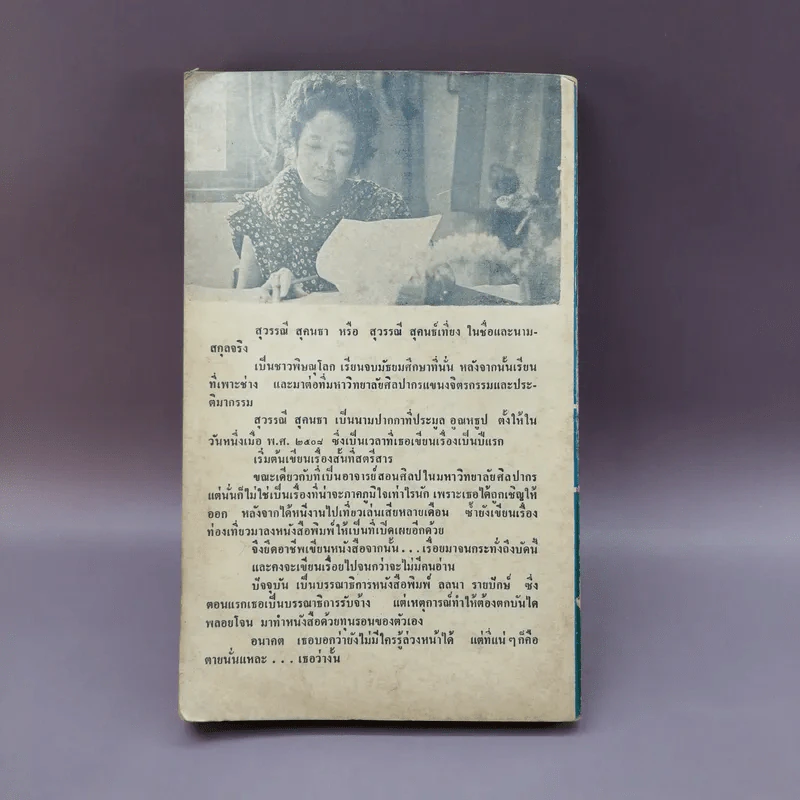 สุวรรณี สุคนธา หรือ สุวรรณี สุคนธ์เที่ยง ในชื่อและนาม-
สกุลจริง
เป็นชาวพิษณุโลก เรียนจบมัธยมศึกษาที่นั่น หลังจากนั้นเรียน
ที่เพาะช่าง และมาต่อที่มหาวิทยาลัยศิลปากรแขนงจิตรกรรมและประ-
ติมากรรม
สุวรรณี สุคนธา เป็นนามปากกาที่ประมูล อุณหธูป ตั้งให้ใน
วันหนึ่งเมื่อ พ.ศ. ๒๕๐๘ ซึ่งเป็นเวลาที่เธอเขียนเรื่องเป็นปีแรก
เริ่มต้นเขียนเรื่องสั้นที่สตรีสาร
ขณะเดียวกับที่เป็นอาจารย์สอนศิลปในมหาวิทยาลัยศิลปากร
แต่นั่นก็ไม่ใช่เป็นเรื่องที่น่าจะภาคภูมิใจเท่าไรนัก เพราะเธอได้ถูกเชิญให้
ออก หลังจากได้หนีงานไปเที่ยวเล่นเสียหลายเดือน ซ้ำยังเขียนเรื่อง
ท่องเที่ยวมาลงหนังสือพิมพ์ให้เป็นที่เปิดเผยอีกด้วย
จึงยึดอาชีพเขียนหนังสือจากนั้น...เรื่อยมาจนกระทั่งถึงบัดนี้
และคงจะเขียนเรื่อยไปจนกว่าจะไม่มีคนอ่าน
ปัจจุบัน เป็นบรรณาธิการหนังสือพิมพ์ ลลนา รายปักษ์ ซึ่ง
ตอนแรกเธอเป็นบรรณาธิการรับจ้าง แต่เหตุการณ์ทำให้ต้องตกบันได
พลอยโจน มาทำหนังสือด้วยทุนรอนของตัวเอง
อนาคต เธอบอกว่ายังไม่มีใครรู้ล่วงหน้าได้ แต่ที่แน่ๆก็คือ
ตายนั่นแหละ ... เธอว่างั้น